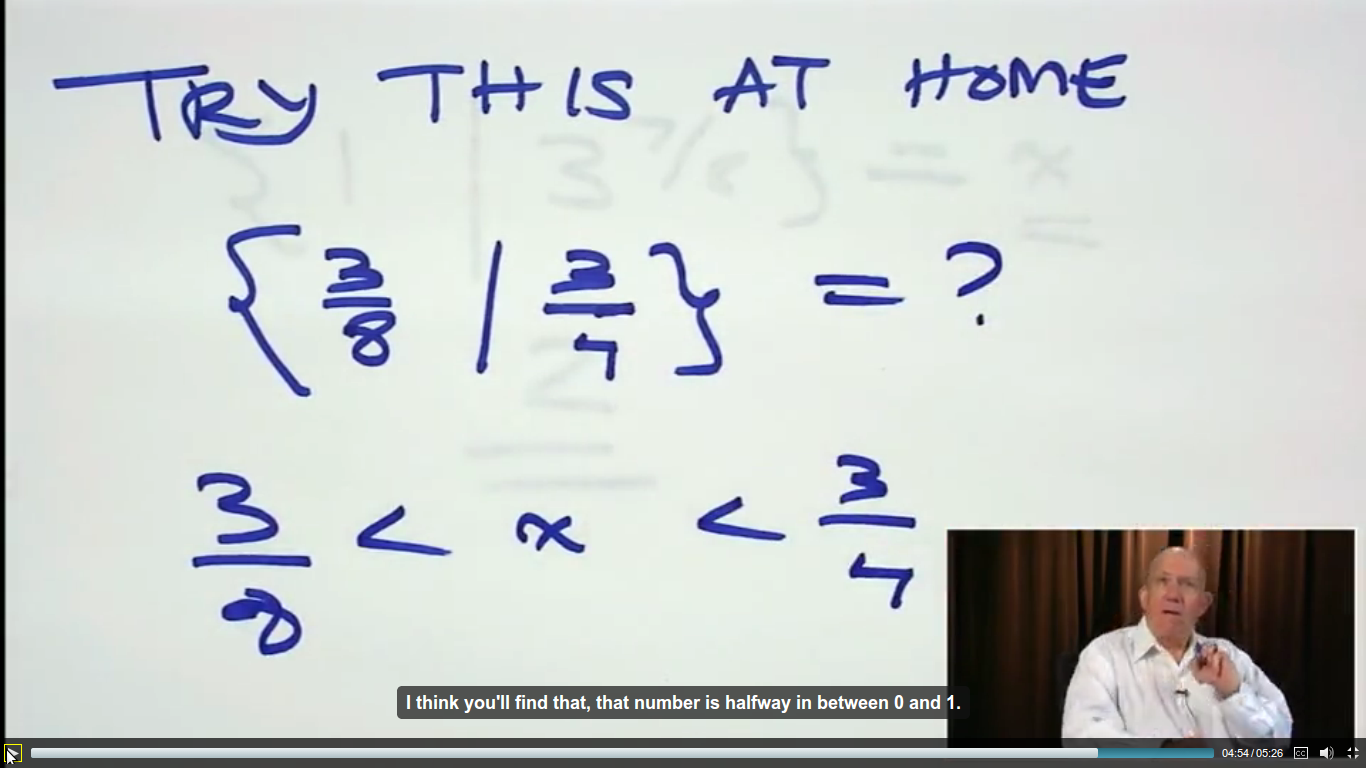 TRY THIS AT HOME
{ 3/8 | 3/4 } = ?
3/8 < x < 3/4
I think you'll find that, that number is halfway in between 0 and 1.
04:54 / 05:26 CC